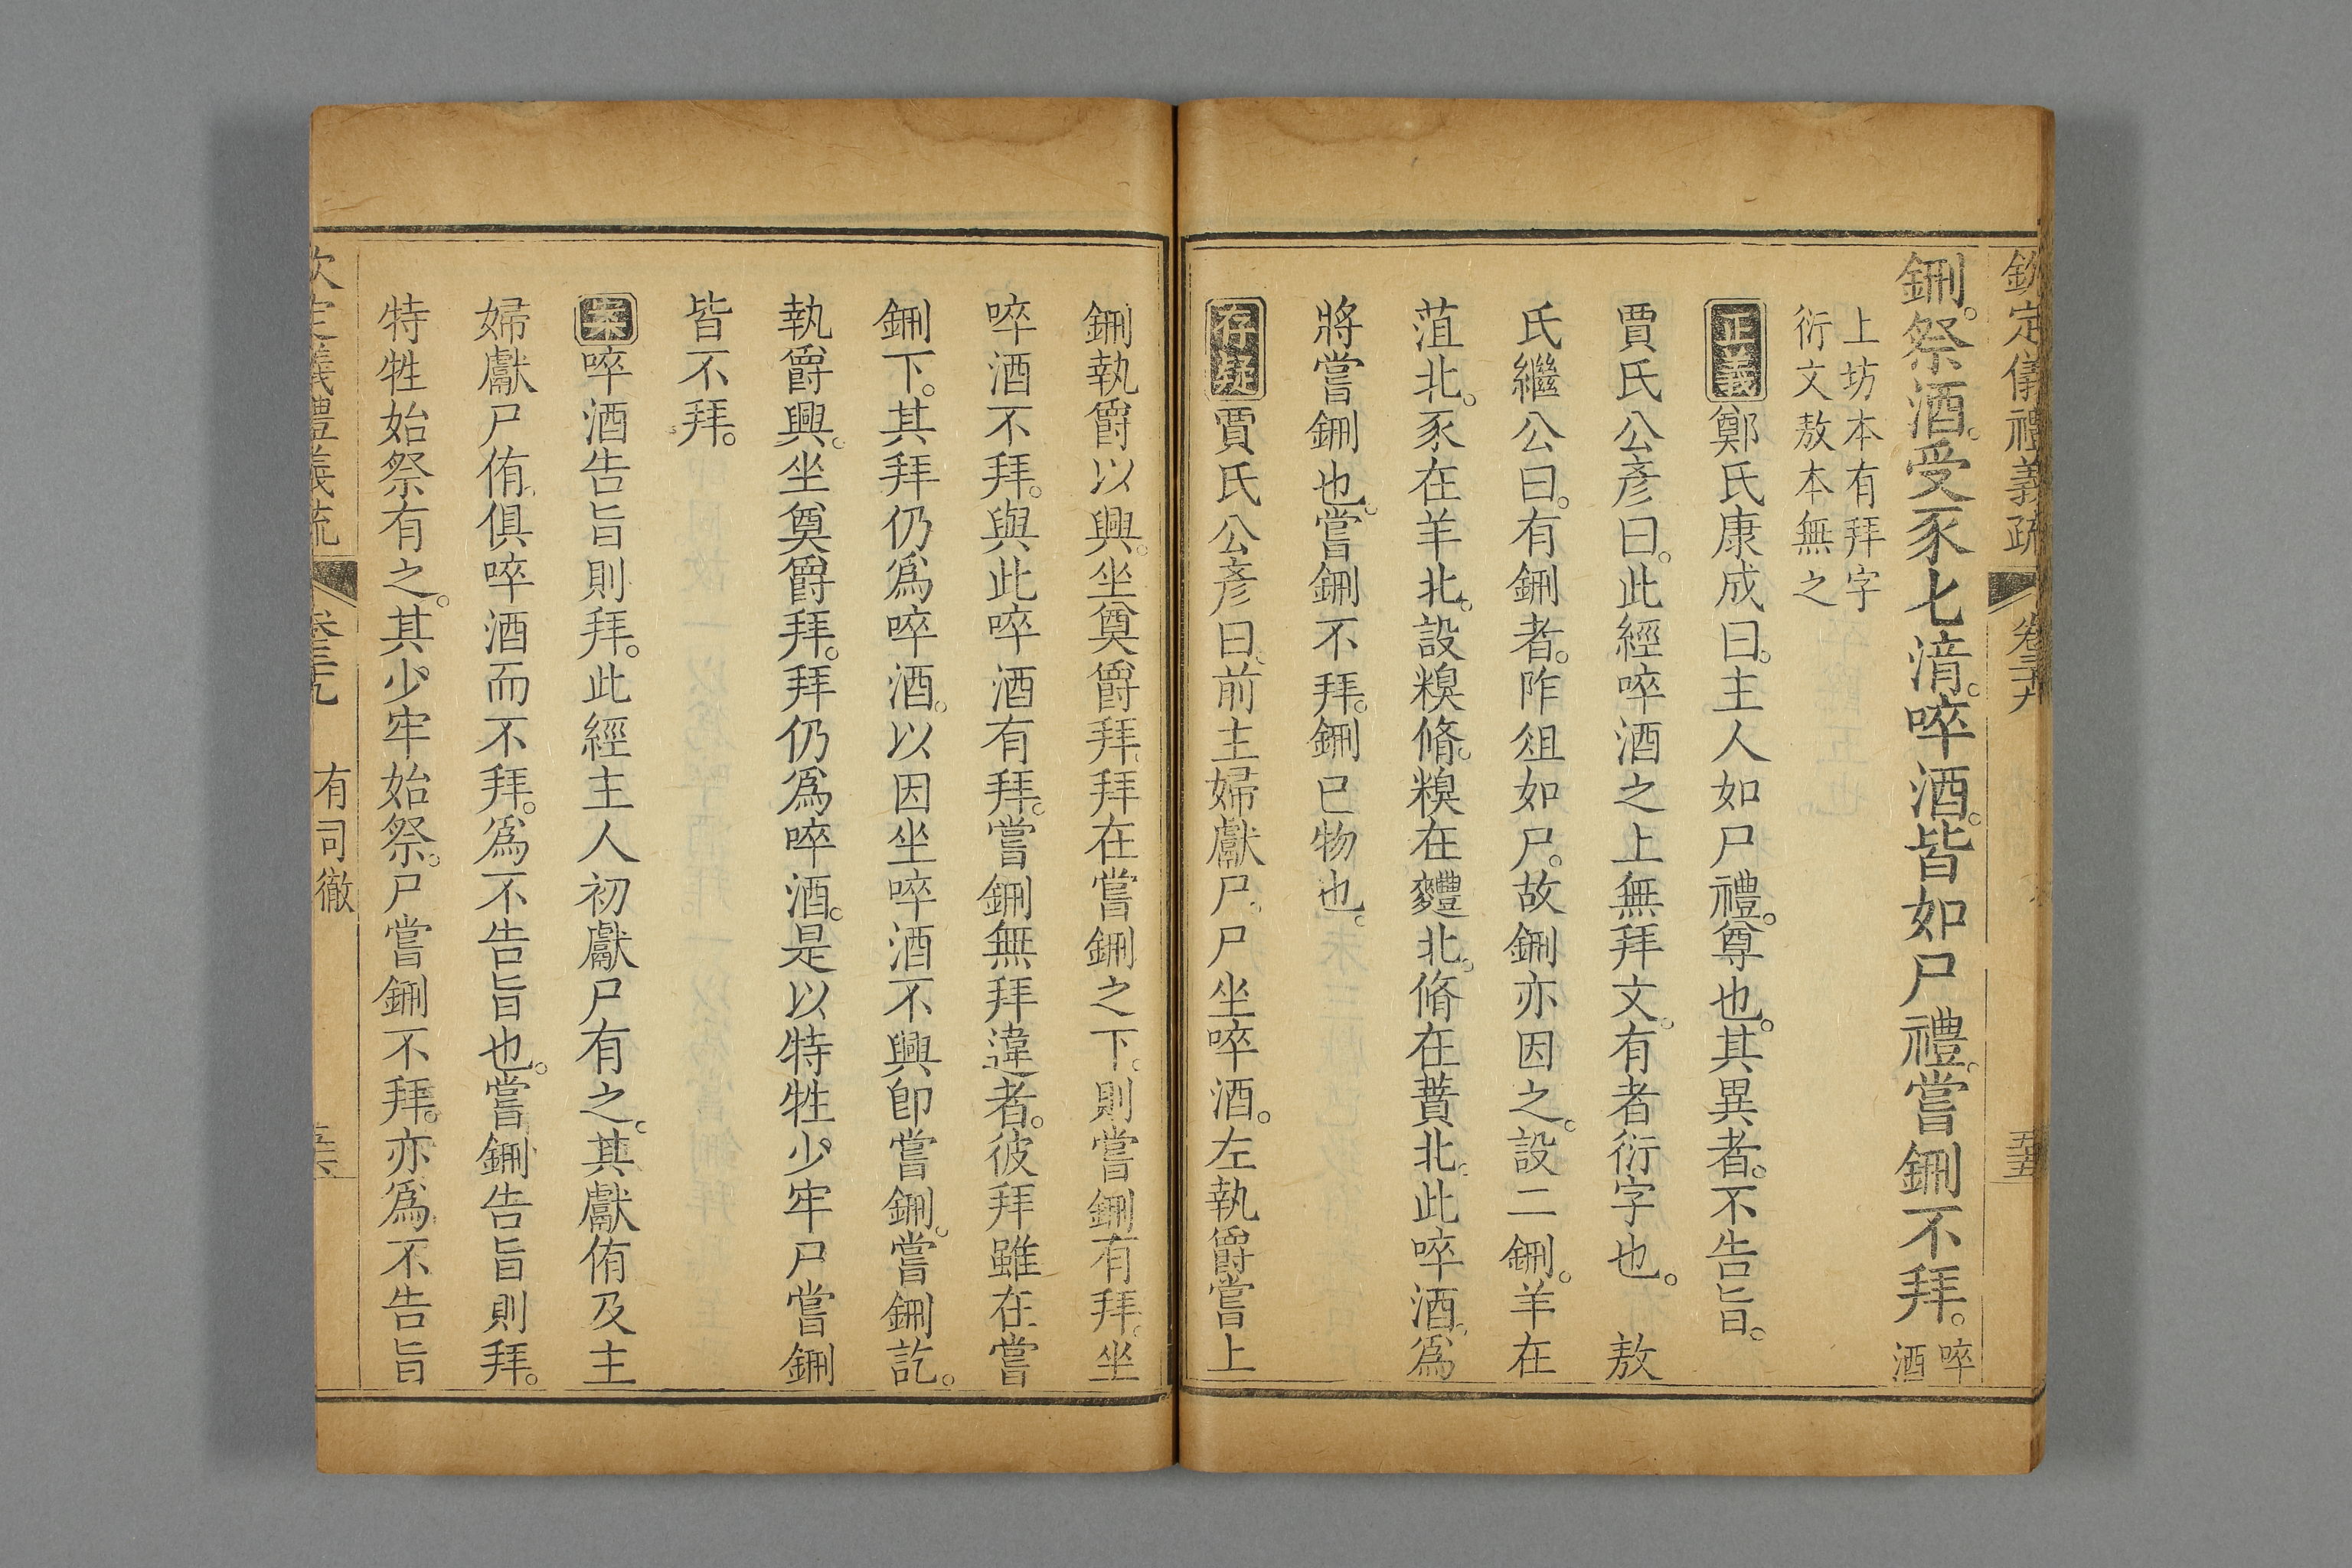 欽定儀禮義疏　卷三十九　五五
鉶。祭酒。受豕匕湆。啐酒。皆如尸禮。嘗鉶不拜。啐酒
上坊本有拜字
衍文敖本無之
正義鄭氏康成曰。主人如尸禮。尊也。其異者。不告旨。
賈氏公彥曰。此經啐酒之上無拜文。有者衍字也。　敖
氏繼公曰。有鉶者。阼俎如尸。故鉶亦因之。設二鉶。羊在
菹北。豕在羊北。設糗脩。糗在麷北。脩在蕡北。此啐酒。爲
將嘗鉶也。嘗鉶不拜。鉶已物也。
存疑賈氏公彥曰。前主婦獻尸。尸坐啐酒。左執爵嘗上
鉶執爵以興。坐奠爵拜。拜在嘗鉶之下。則嘗鉶有拜。坐
啐酒不拜。與此啐酒有拜。嘗鉶無拜違者。彼拜雖在嘗
鉶下。其拜仍爲啐酒。以因坐啐酒不興卽嘗鉶。嘗鉶訖。
執爵興。坐奠爵拜。拜仍爲啐酒。是以特牲少牢尸嘗鉶
皆不拜。
案啐酒告旨則拜。此經主人初獻尸有之。其獻侑及主
婦獻尸侑。俱啐酒而不拜。爲不告旨也。嘗鉶告旨則拜。
特牲始祭有之。其少牢始祭。尸嘗鉶不拜。亦爲不告旨
欽定儀禮義疏　卷三十九　有司徹